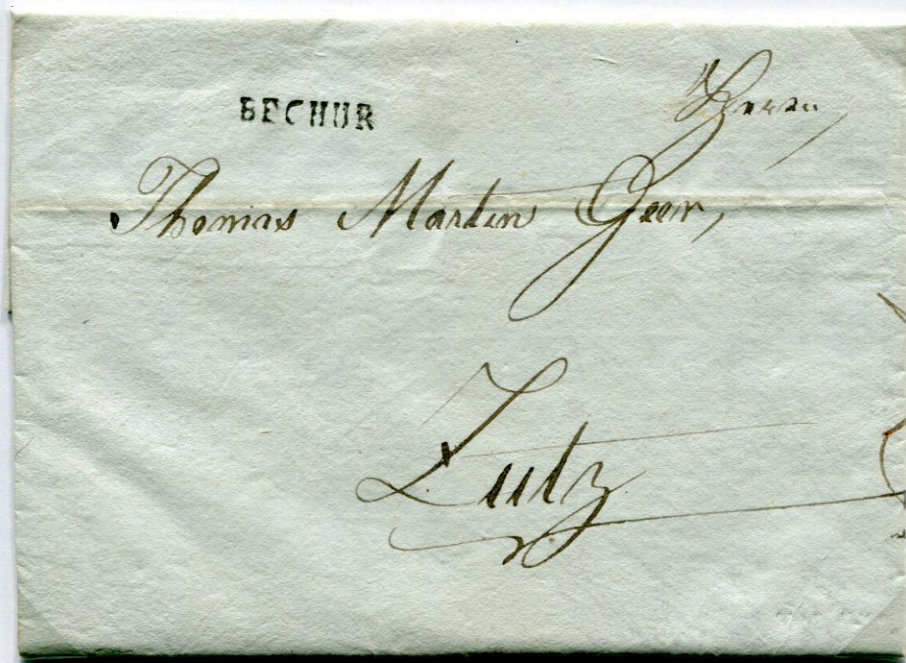 BECHUR
Herrn,
Thomas Martin Geer,
Lutz